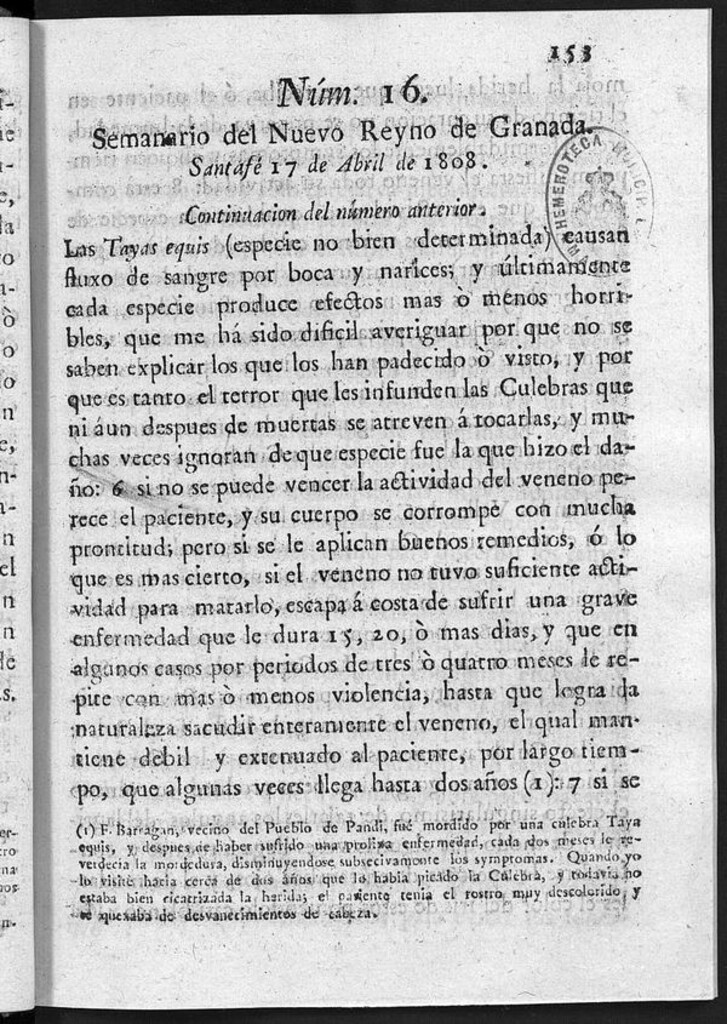 153
Núm. 16.
Semanario del Nuevo Reyno de Granada.
Santafé 17 de Abril de 1808.
HEMEROTECA MUNICIPAL
Continuacion del número anterior.
Las Tayas equis (especie no bien determinada) causan
fluxo de sangre por boca y narices; y últimamente
cada especie produce efectos mas ò menos horri-
bles, que me há sido dificil averiguar por que no se
saben explicar los que los han padecido ò visto, y por
que es tanto el terror que les infunden las Culebras que
ni áun despues de muertas se atreven á tocarlas, y mu-
chas veces ignoran de que especie fue la que hizo el da-
ño: 6 si no se puede vencer la actividad del veneno pe-
rece el paciente, y su cuerpo se corrompe con mucha
prontitud; pero si se le aplican buenos remedios, ó lo
que es mas cierto, si el veneno no tuvo suficiente acti-
vidad para matarlo, escapa á costa de sufrir una grave
enfermedad que le dura 15, 20, ò mas dias, y que en
algunos casos por periodos de tres ò quatro meses le re-
pite con mas ò menos violencia, hasta que logra la
naturaleza sacudir enteramente el veneno, el qual man-
tiene debil y extenuado al paciente, por largo tiem-
po, que algunas veces llega hasta dos años (1): 7 si se
(1) F. Barragan, vecino del Pueblo de Pandi, fué mordido por una culebra Taya
equis, y despues de haber sufrido una prolixa enfermedad, cada dos meses le re-
verdecia la mordedura, disminuyendose subsecivamente los symptomas. Quando yo
lo visité hacia cerca de dos años que lo habia picado la Culebra, y todavia no
estaba bien cicatrizada la herida; el paciente tenia el rostro muy descolorido, y
se quexaba de desvanecimientos de cabeza.